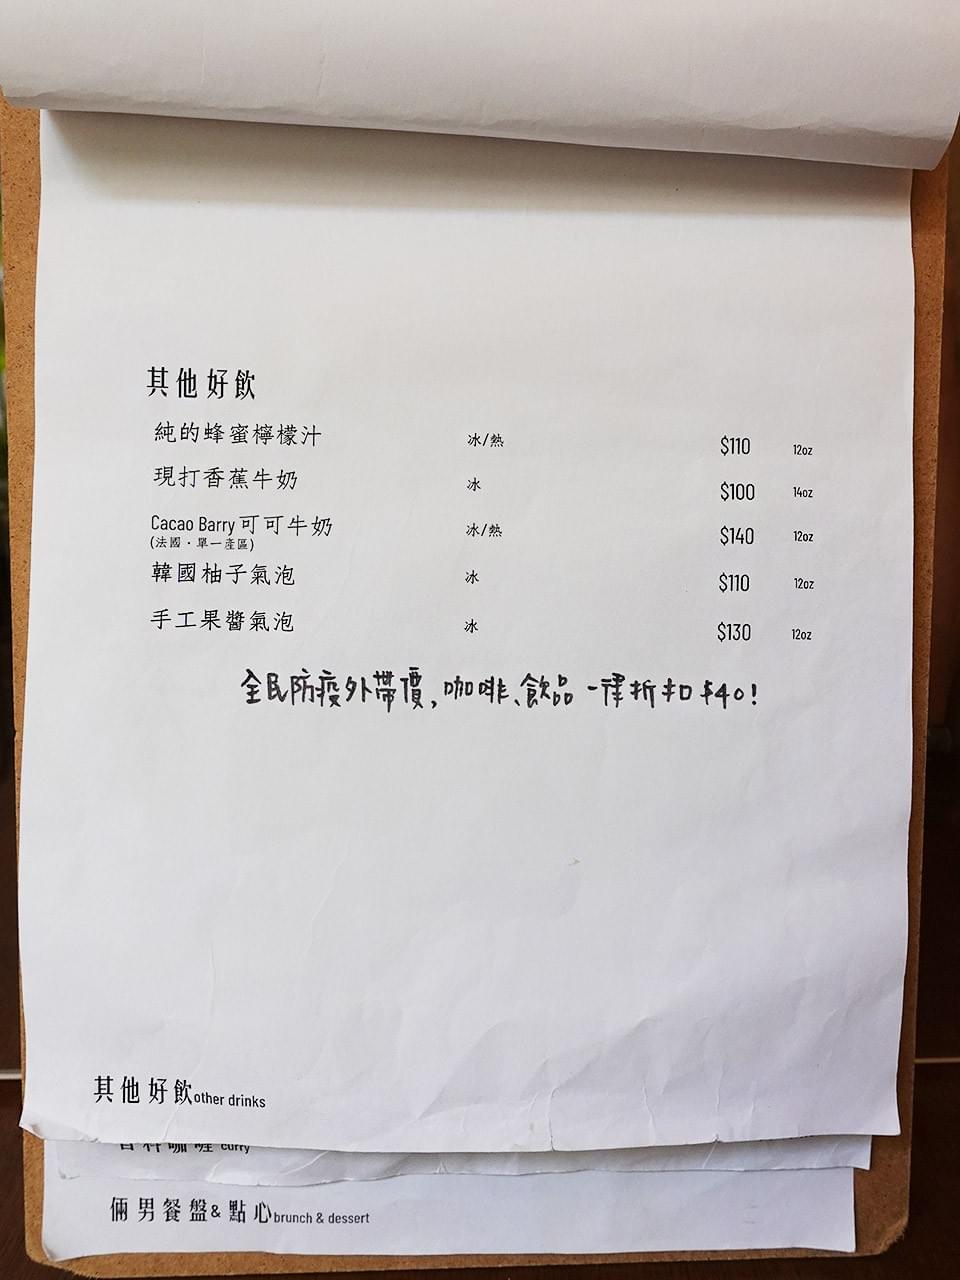 其他好飲
純的蜂蜜檸檬汁 冰/熱 $110 12oz
現打香蕉牛奶 冰 $100 14oz
Cacao Barry 可可牛奶 冰/熱 $140 12oz
(法國·單一產區)
韓國柚子氣泡 冰 $110 12oz
手工果醬氣泡 冰 $130 12oz
全民防疫外帶價,咖啡、飲品一律折扣$40!
其他好飲other drinks
咖喱 curry
倆男餐盤&點心brunch & dessert